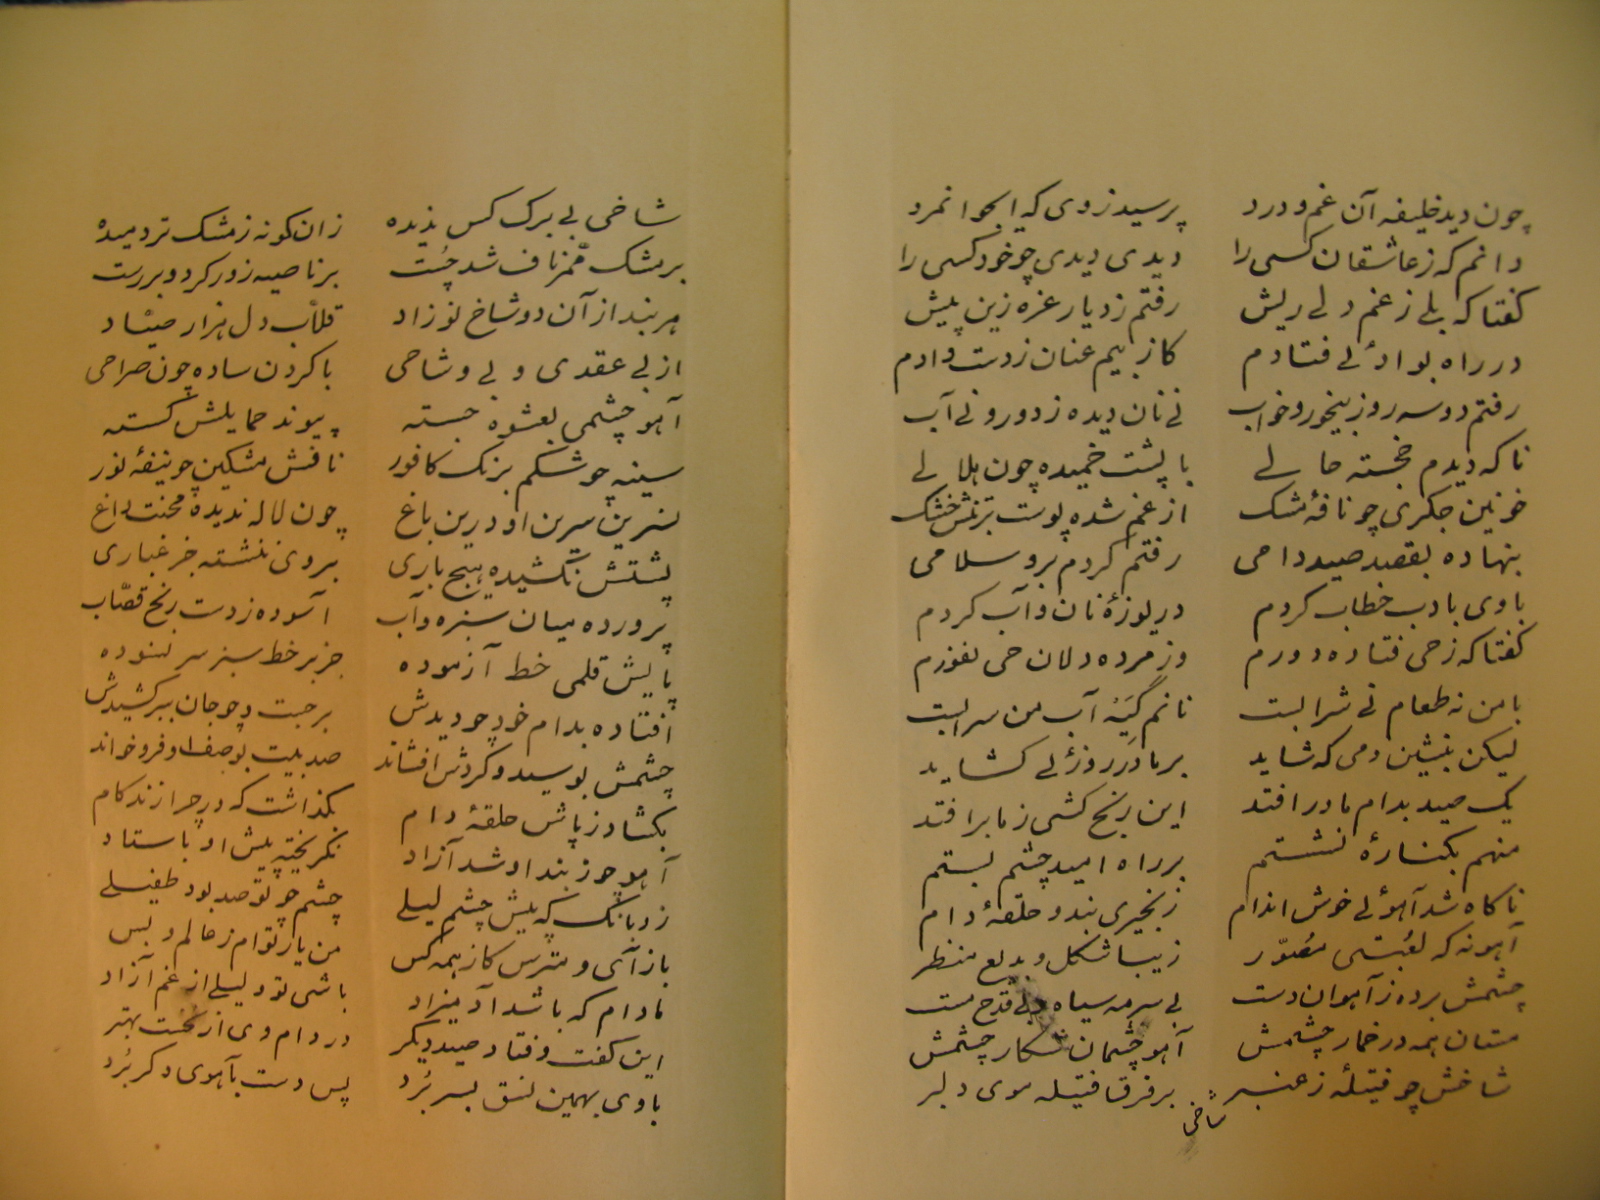 چون دید خلیفه آن غم و درد
پرسید ز وی که ایجوانمرد
دانم که ز عاشقان کسی را
دیدی دیدی چو خود کسی را
گفتا که بلے ز غم دلے ریش
رفتم ز دیار غزه زین پیش
در راه بوادئے فتادم
کاز بیم عنان ز دست دادم
رفتم دو سه روز بیخور و خواب
نے نان دیده ز دور و نے آب
ناگه دیدم خجسته حالے
با پشت خمیده چون هلالے
خونین جگری چو نافۀ مشک
از غم شده پوست بر تنش خشک
بنهاده بقصد صید دامی
رفتم کردم برو سلامی
با وی بادب خطاب کردم
دریوزۀ نان و آب کردم
گفتا که ز حی فتاده دورم
وز مرده دلان حی نفورم
با من نه طعام نے شرابست
نانم گیه آب من سرابست
لیکن بنشین دمی که شاید
بر ما در روزئے کشاید
یک صید بدام ما در افتد
این رنج کشی ز ما بر افتد
منهم بکنارۀ نشستم
بر راه امید چشم بستم
ناگاه شد آهوئے خوش اندام
زنجیری بند و حلقۀ دام
آهو نه که لعبتی مصوّر
زیبا شکل و بدیع منظر
چشمش برده ز آهوان دست
بے سرمه سیاه و بے قدح مست
مستان همه در خمار چشمش
آهو چشمان شکار چشمش
شاخش چو فتیلۀ ز عنبر
بر فرق فتیله موی دلبر
شاخی
شاخی بے برگ کس ندیده
زان گونه ز مشک تر دمیده
بر مشک مگر ناف شد چست
بر ناصیه زور کرد و بررست
هر بند از آن دو شاخ نوزاد
قلاب دل هزار صیّاد
از بے عقدی و بے وشاحی
با گردن ساده چون صراحی
آهو چشمی بعشوه جسته
پیوند حمایلش گسسته
سینه چو شکم برنگ کافور
نافش مشکین چو نیفۀ نور
نسرین سرین او درین باغ
چون لاله ندیده محنت داغ
پشتش نکشیده هیچ باری
بر وی ننشسته جز غباری
پرورده میان سبزه و آب
آسوده ز دست رنج قصّاب
پایش قلمی خط آزموده
جز بر خط سبز سر نسوده
افتاده بدام خود چو دیدش
برجست و چو جان ببر کشیدش
چشمش بوسید و گردش افشاند
صد بیت بوصف او فرو خواند
بکشاد ز پاش حلقۀ دام
بگذاشت که در چرا زند گام
آهو چو ز بند او شد آزاد
نگریخته پیش او باستاد
زد بانگ که پیش چشم لیلے
چشم چو تو صد بود طفیلے
باز آی و مترس کاز همه کس
من یار توام ز عالم و بس
مادام که باشد آدمیزاد
باشی تو و لیلے از غم آزاد
این گفت و فتاد صید دیگر
در دام وی از نخست بهتر
با وی بهمین نسق بسر برد
پس دست بآهوی دگر برد